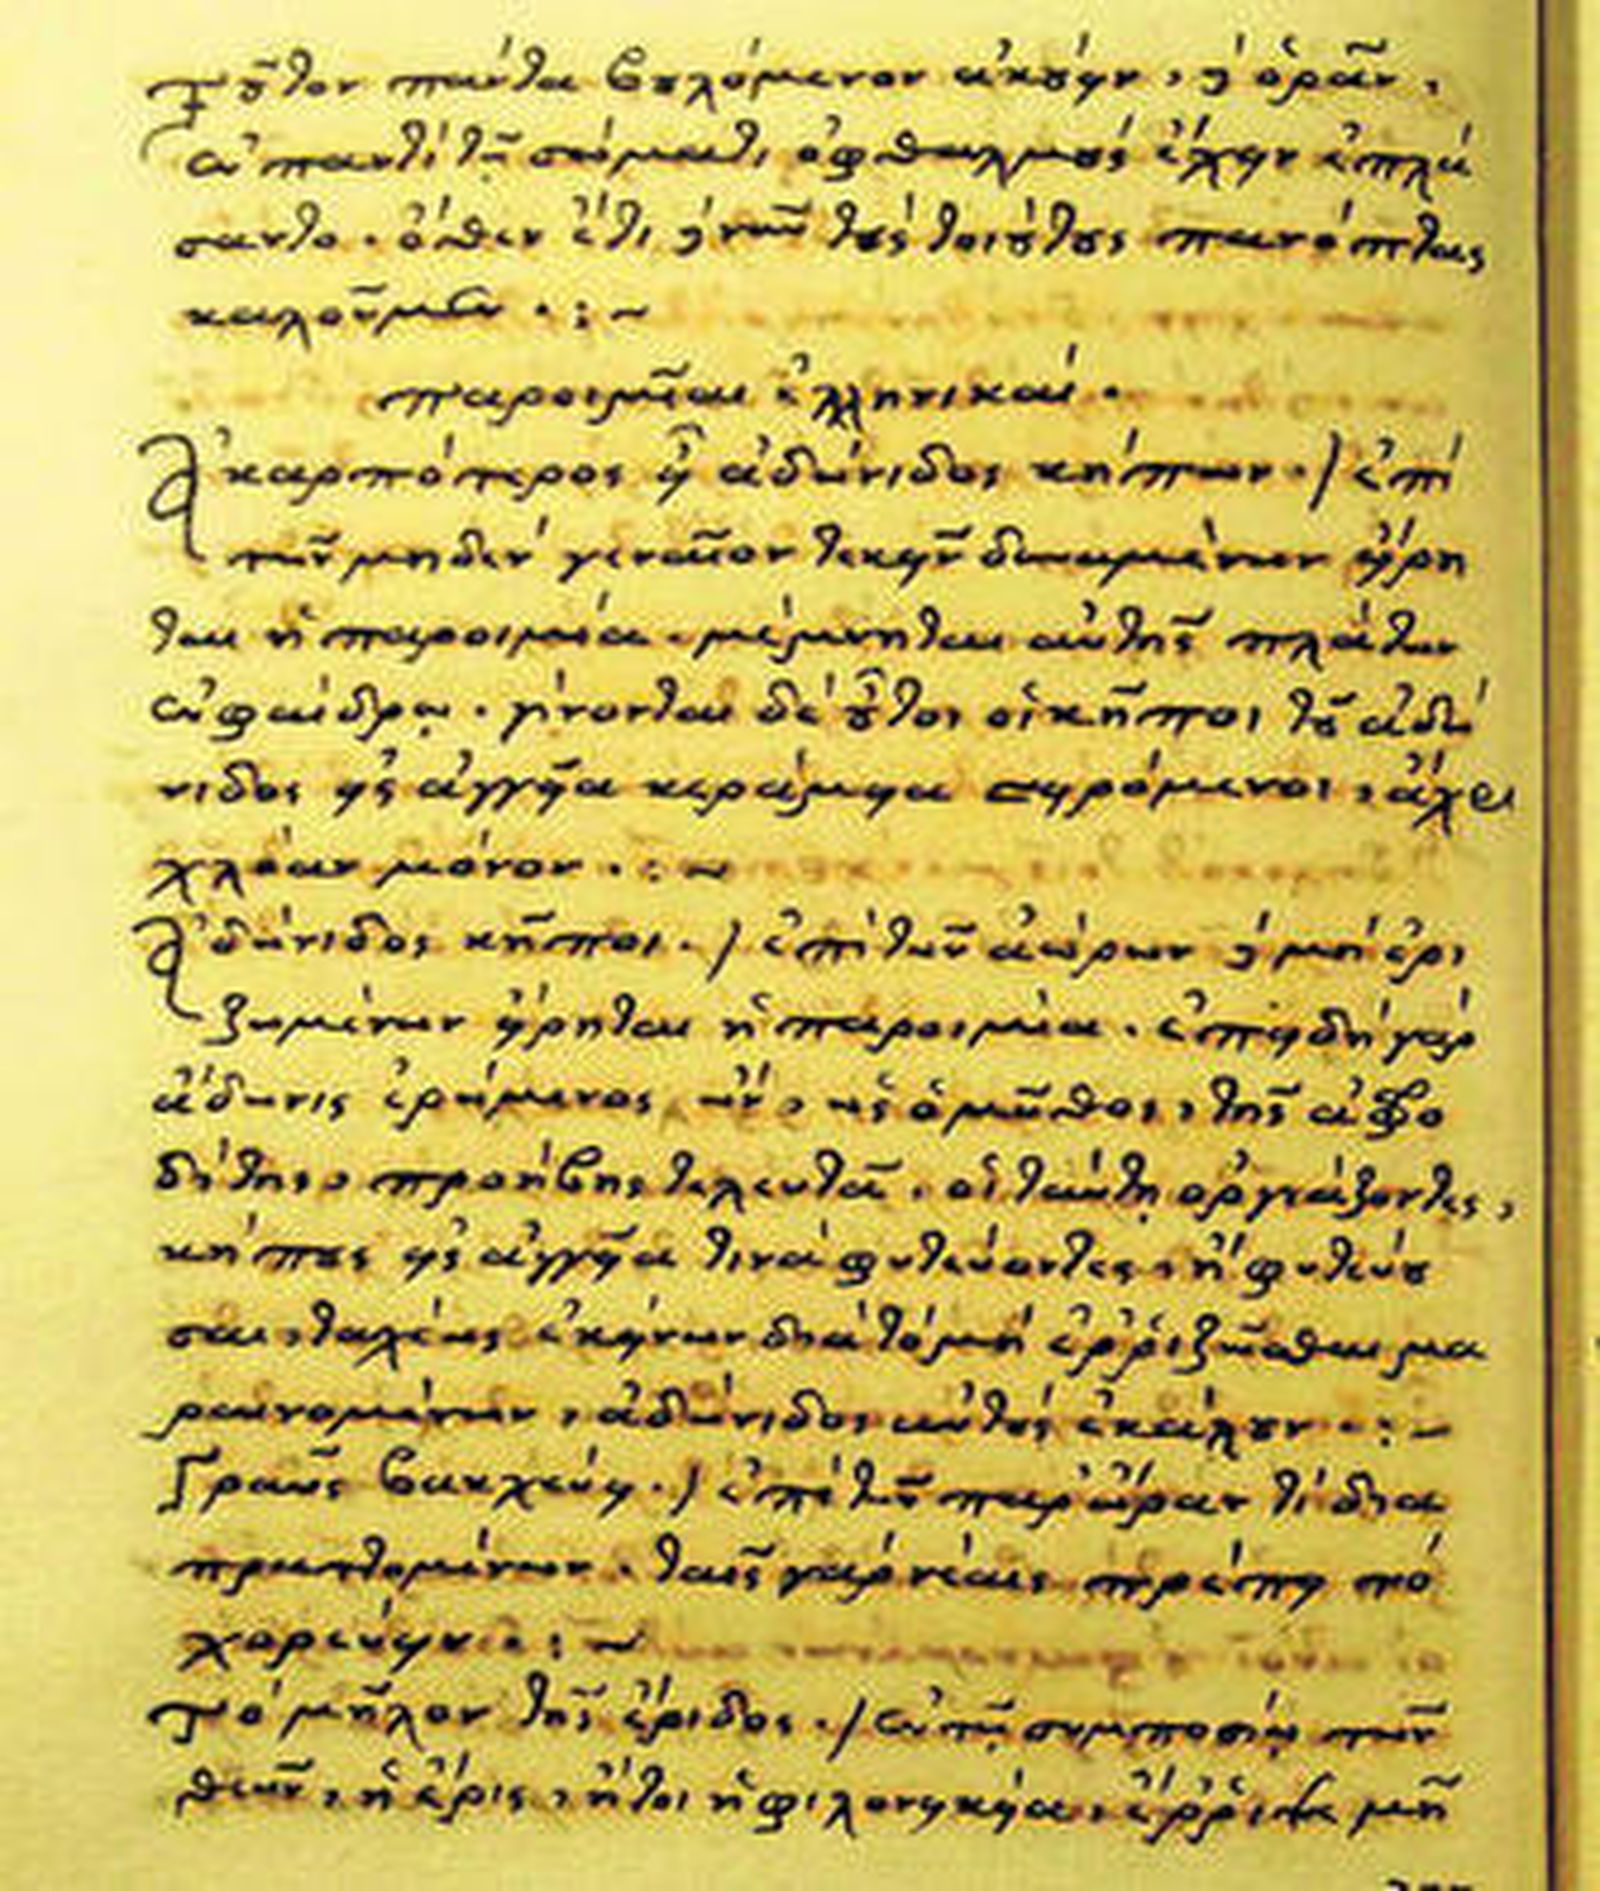 τοῦτον πάντα βουλόμενον ἀκούειν, καὶ ὁρᾶν,
ἐν παντὶ τῷ σώματι ὀφθαλμοὺς ἔχειν ἐπλά
σαντο. ὅθεν ἔτι καὶ νῦν τοὺς τοιούτους πανόπτας
καλοῦμεν . : ~
παροιμῖαι ἑλληνικαί .
Ἀκαρπότερος εἶ ἀδώνιδος κήπων . / ἐπὶ
τῶν μηδὲν γεναῖον τεκεῖν δυναμένων εἴρη
ται ἡ παροιμία. μέμνηται αὐτῆς πλάτων
ἐν φαίδρῳ . γίνονται δὲ οὗτοι οἱ κῆποι τοῦ ἀδώ
νιδος εἰς ἀγγεῖα κεράμεια σπειρόμενοι, ἄχρι
χλόαν μόνον . : ~
Ἀδώνιδος κῆποι . / ἐπὶ τῶν ἀώρων καὶ μὴ ἐρι
ζωμένων εἴρηται ἡ παροιμία . ἐπειδὴ γὰρ
ἄδωνις ἐρώμενος ὢν, ὡς ὁ μῦθος, τῆς ἀφρο
δίτης, προήβης τελευτᾶ. οἱ ταύτη ὀργιάζοντες,
κήπους εἰς ἀγγεῖα τινὰ φυτεύοντες, ἢ φυτεύου
σαι, ταχέως ἐκείνων διὰ τὸ μὴ ἐρριζῶσθαι μα
ραινομένων, ἀδώνιδος αὐτοὺς ἐκάλουν . : ~
Γραῦς βακχεύει . / ἐπὶ τῶν παρ' ὥραν τὶ δια
πραττομένων . ταῖς γὰρ νέαις πρέπει τὸ
χορεύειν . : ~
Τὸ μῆλον τῆς ἔριδος . / ἐν τῷ συμποσίῳ τῶν
θεῶν, ἡ ἔρις, ἤτοι ἡ φιλονεικεία, ἔρριψε μῆ